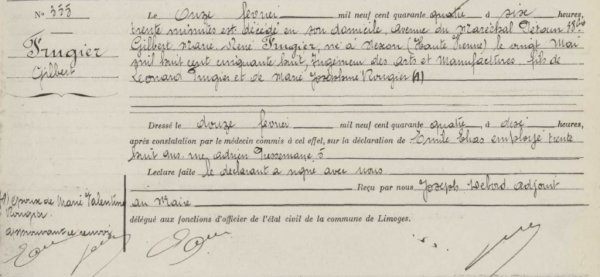 No 333
Frugier
Gilbert
Le Onze fevrier mil neuf cent quarante quatre à six heures,
trente minutes est décédé en son domicile, avenue du Maréchal Pétain
Gilbert Marie René Frugier, né à Nexon (Haute Vienne) le vingt Mai
mil huit cent cinquante huit, Ingénieur des Arts et Manufactures fils de
Léonard Frugier et de Marie Joséphine Rougier (1)
Dressé le douze fevrier mil neuf cent quarante quatre, à dix heures,
après constatation par le médecin commis à cet effet, sur la déclaration de Emile employé trente
huit ans, rue Adrien Pressemane, 5
Lecture faite le déclarant a signé avec nous
Reçu par nous Joseph adjoint
au Maire
délégué aux fonctions d'officier de l'état civil de la commune de Limoges.
(1) époux de Marie Valentine
Rougier
approuvant ce renvoi